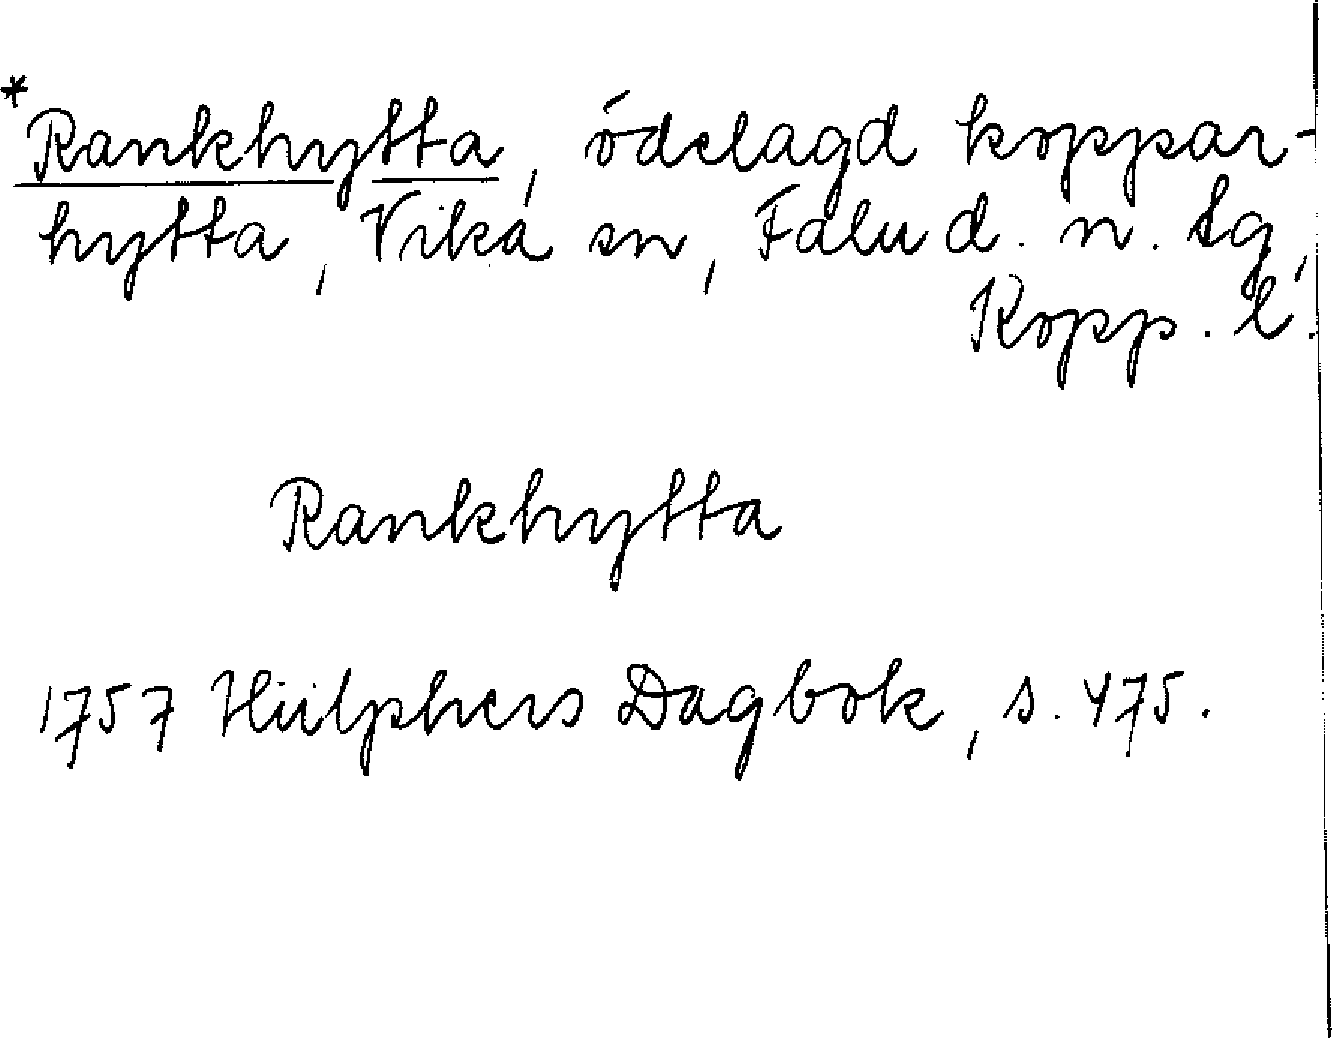 *Rankhytta, ödelagd koppar-
hytta, Vika sn, Falu d. n. tg,
Kopp. l.
Rankhytta
1757 Hülphers Dagbok, s. 475.